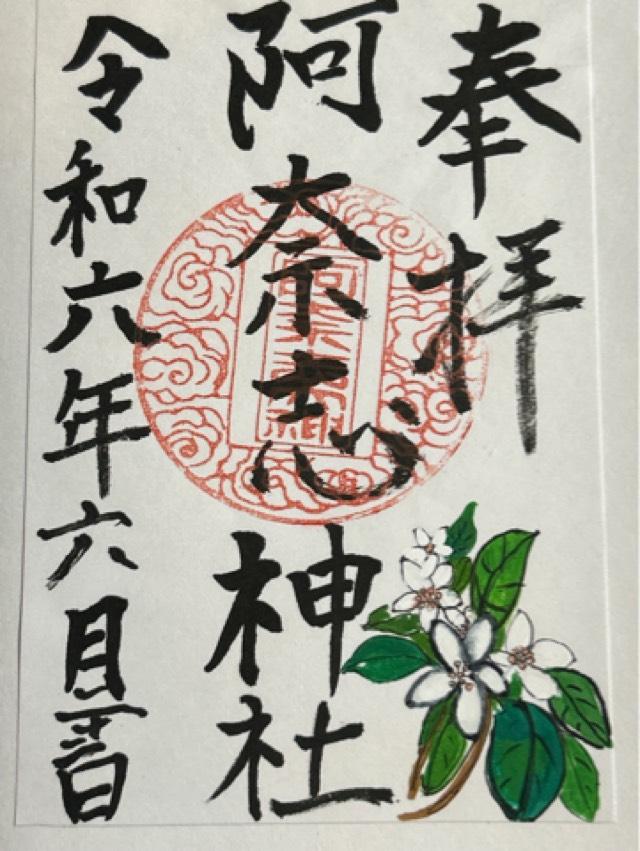 奉拝
阿奈志神社
令和六年六月吉日